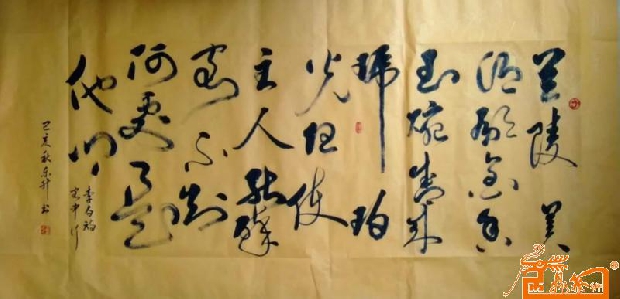 兰陵美
酒郁金香
玉碗盛来
琥珀
光但使
主人能醉
客不知
何处是
他乡
李白诗
客中行
己亥秋东升书